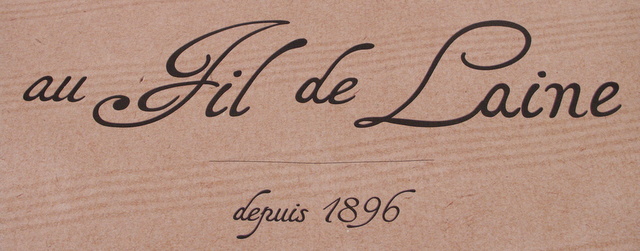 au Fil de Laine
depuis 1896